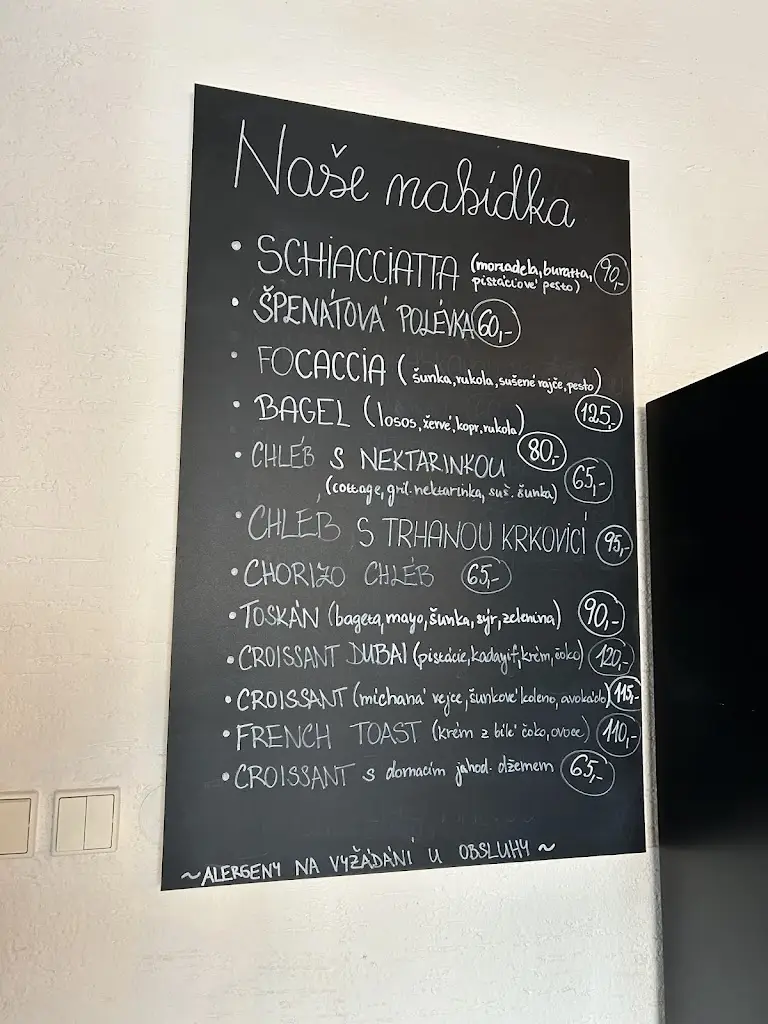 Naše nabídka
• SCHIACCIATTA (mortadela, buratta, 90,-
pistáciové pesto)
• ŠPENÁTOVÁ POLÉVKA 60,-
• FOCACCIA (šunka, rukola, sušené rajče, pesto)
125,-
• BAGEL (losos, žervé, kopr, rukola) 80,-
• CHLÉB S NEKTARINKOU 65,-
(cottage, gril. nektarinka, suš. šunka)
• CHLÉB S TRHANOU KRKOVICÍ 95,-
• CHORIZO CHLÉB 65,-
• TOSKÁN (bageta, mayo, šunka, sýr, zelenina) 90,-
• CROISSANT DUBAI (pistácie, kadayif, krém, čoko) 120,-
• CROISSANT (míchaná vejce, šunkové koleno, avokádo) 115,-
• FRENCH TOAST (krém z bílé čoko, ovoce) 110,-
• CROISSANT s domácím jahod. džemem 65,-
~ALERGENY NA VYŽÁDÁNÍ U OBSLUHY~